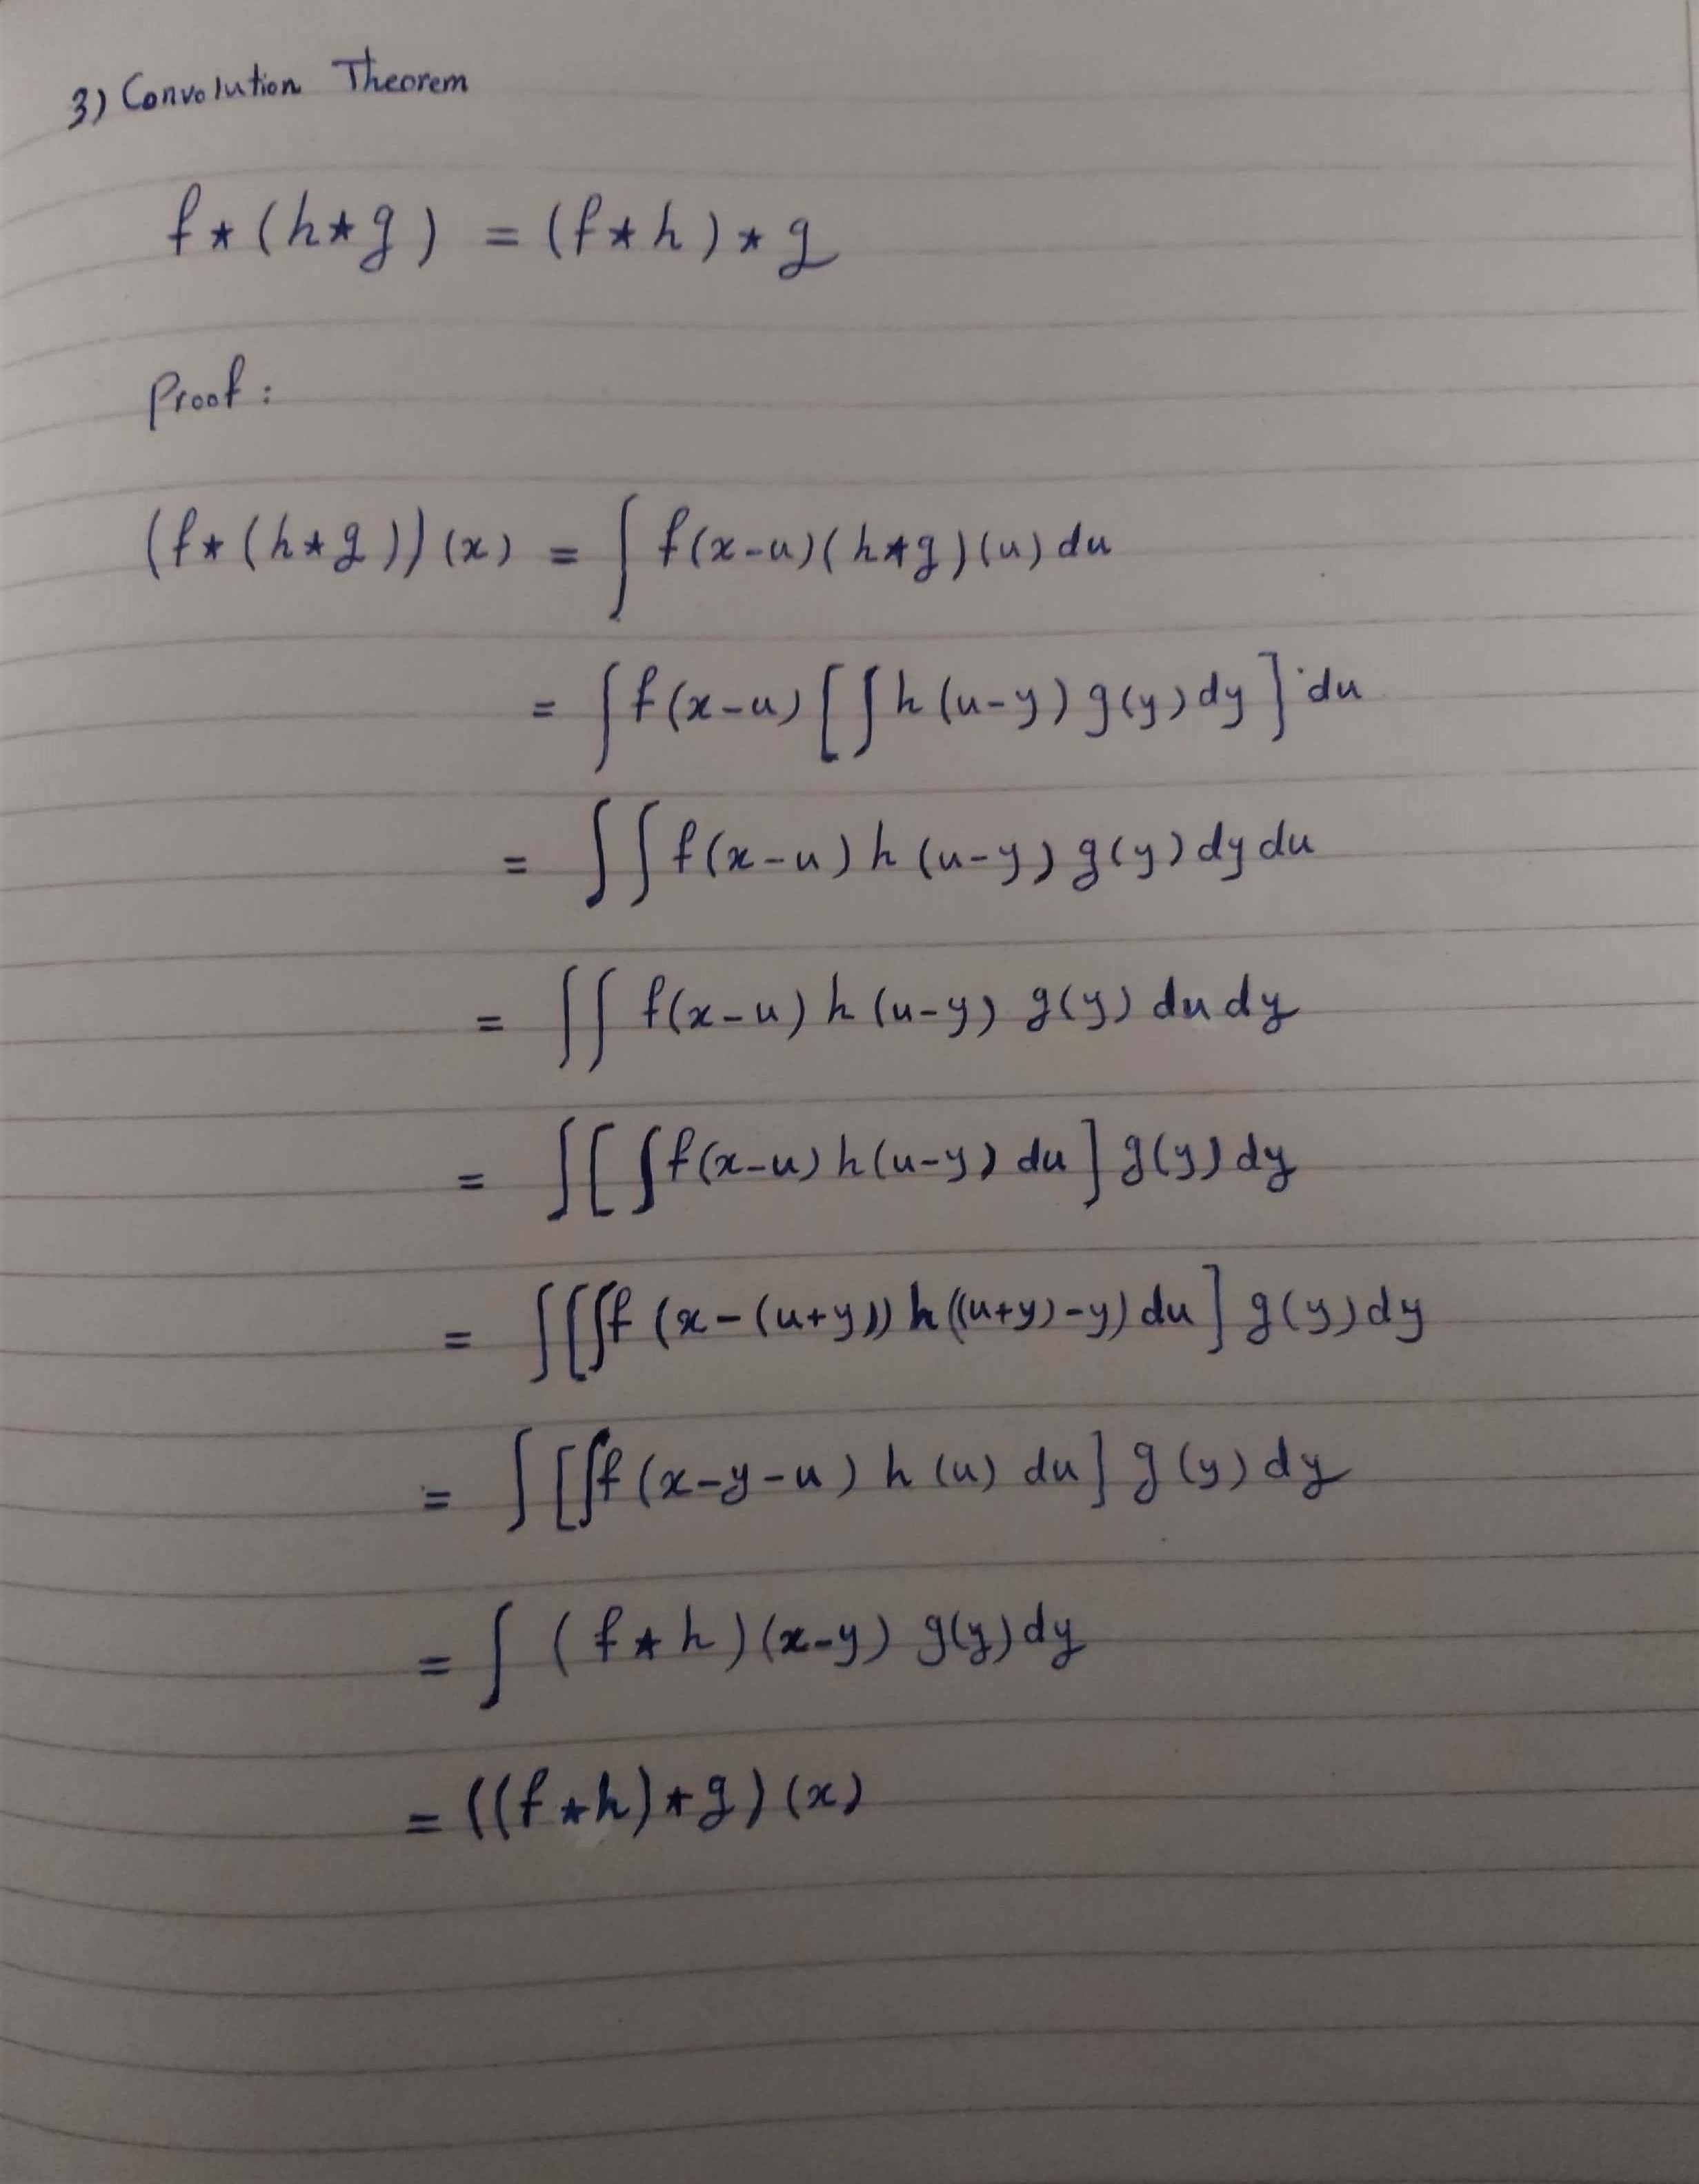 3) Convolution Theorem
f ⋆ (h ⋆ g) = (f ⋆ h) ⋆ g
Proof :
(f ⋆ (h ⋆ g)) (x) = ∫ f(x-u) (h ⋆ g) (u) du
= ∫ f(x-u) [ ∫ h (u-y) g(y) dy ] du
= ∫ ∫ f(x-u) h (u-y) g(y) dy du
= ∫∫ f(x-u) h (u-y) g(y) du dy
= ∫ [ ∫ f(x-u) h(u-y) du ] g(y) dy
= ∫ [ ∫ f (x-(u+y)) h ((u+y)-y) du ] g(y) dy
= ∫ [ ∫ f (x-y-u) h (u) du ] g (y) dy
= ∫ (f ⋆ h) (x-y) g(y) dy
= ((f ⋆ h) ⋆ g) (x)